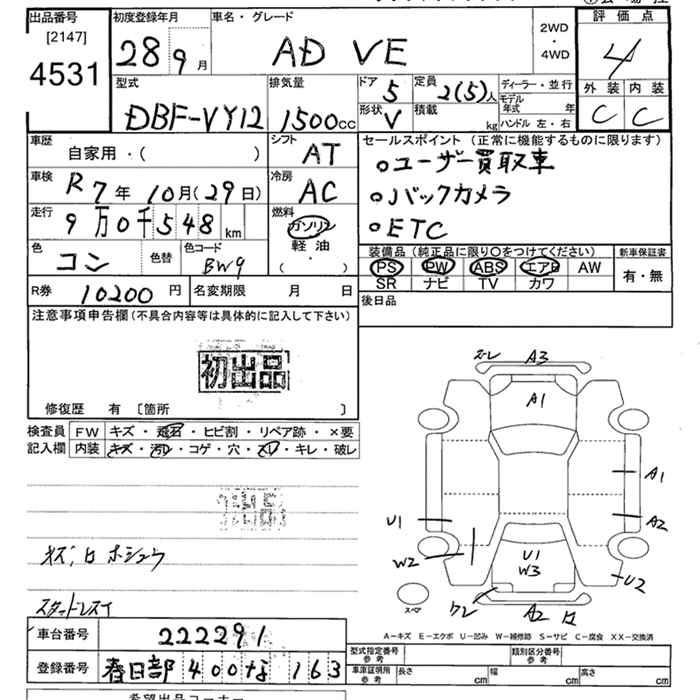 出品番号 初度登録年月 車名・グレード 評価点
[2147]
4531
28 9月 AD VE 2WD・4WD 4
型式 排気量 ドア 5 定員 2(5)人 ディーラー・並行 外装 内装
DBF-VY12 1500cc 形状 V 積載 kg モデル年式 年 C C
ハンドル 左・右
車歴 シフト セールスポイント (正常に機能するものに限ります)
自家用・( ) AT ○ユーザー買取車
車検 R7年10月(29日) 冷房 AC ○バックカメラ
走行 9万0千548km 燃料 ガソリン ○ETC
軽油
・( )
色 コン 色替 色コード BW9
装備品(純正品に限り○をつけてください) 新車保証書
PS PW ABS エアB AW 有・無
SR ナビ TV カワ
R券 10200円 名変期限 月 日 後日品
注意事項申告欄(不具合内容等は具体的に記入して下さい)
初出品
修復歴 有 [箇所 ]
検査員 FW キズ・飛石・ヒビ割・リペア跡・×要
記入欄 内装 キズ・汚レ・コゲ・穴・スレ・キレ・破レ
A3
A1
A1
U1 A2
W2 U1
W3 U2
スペア A2
A-キズ E-エクボ U-凹み W-補修跡 S-サビ C-腐食 XX-交換済
車台番号 222291
型式指定番号 参考 類別区分番号 参考
登録番号 春日部 400 な 163
車庫証明用 参考 長さ cm 幅 cm 高さ cm
希望出品コーナー